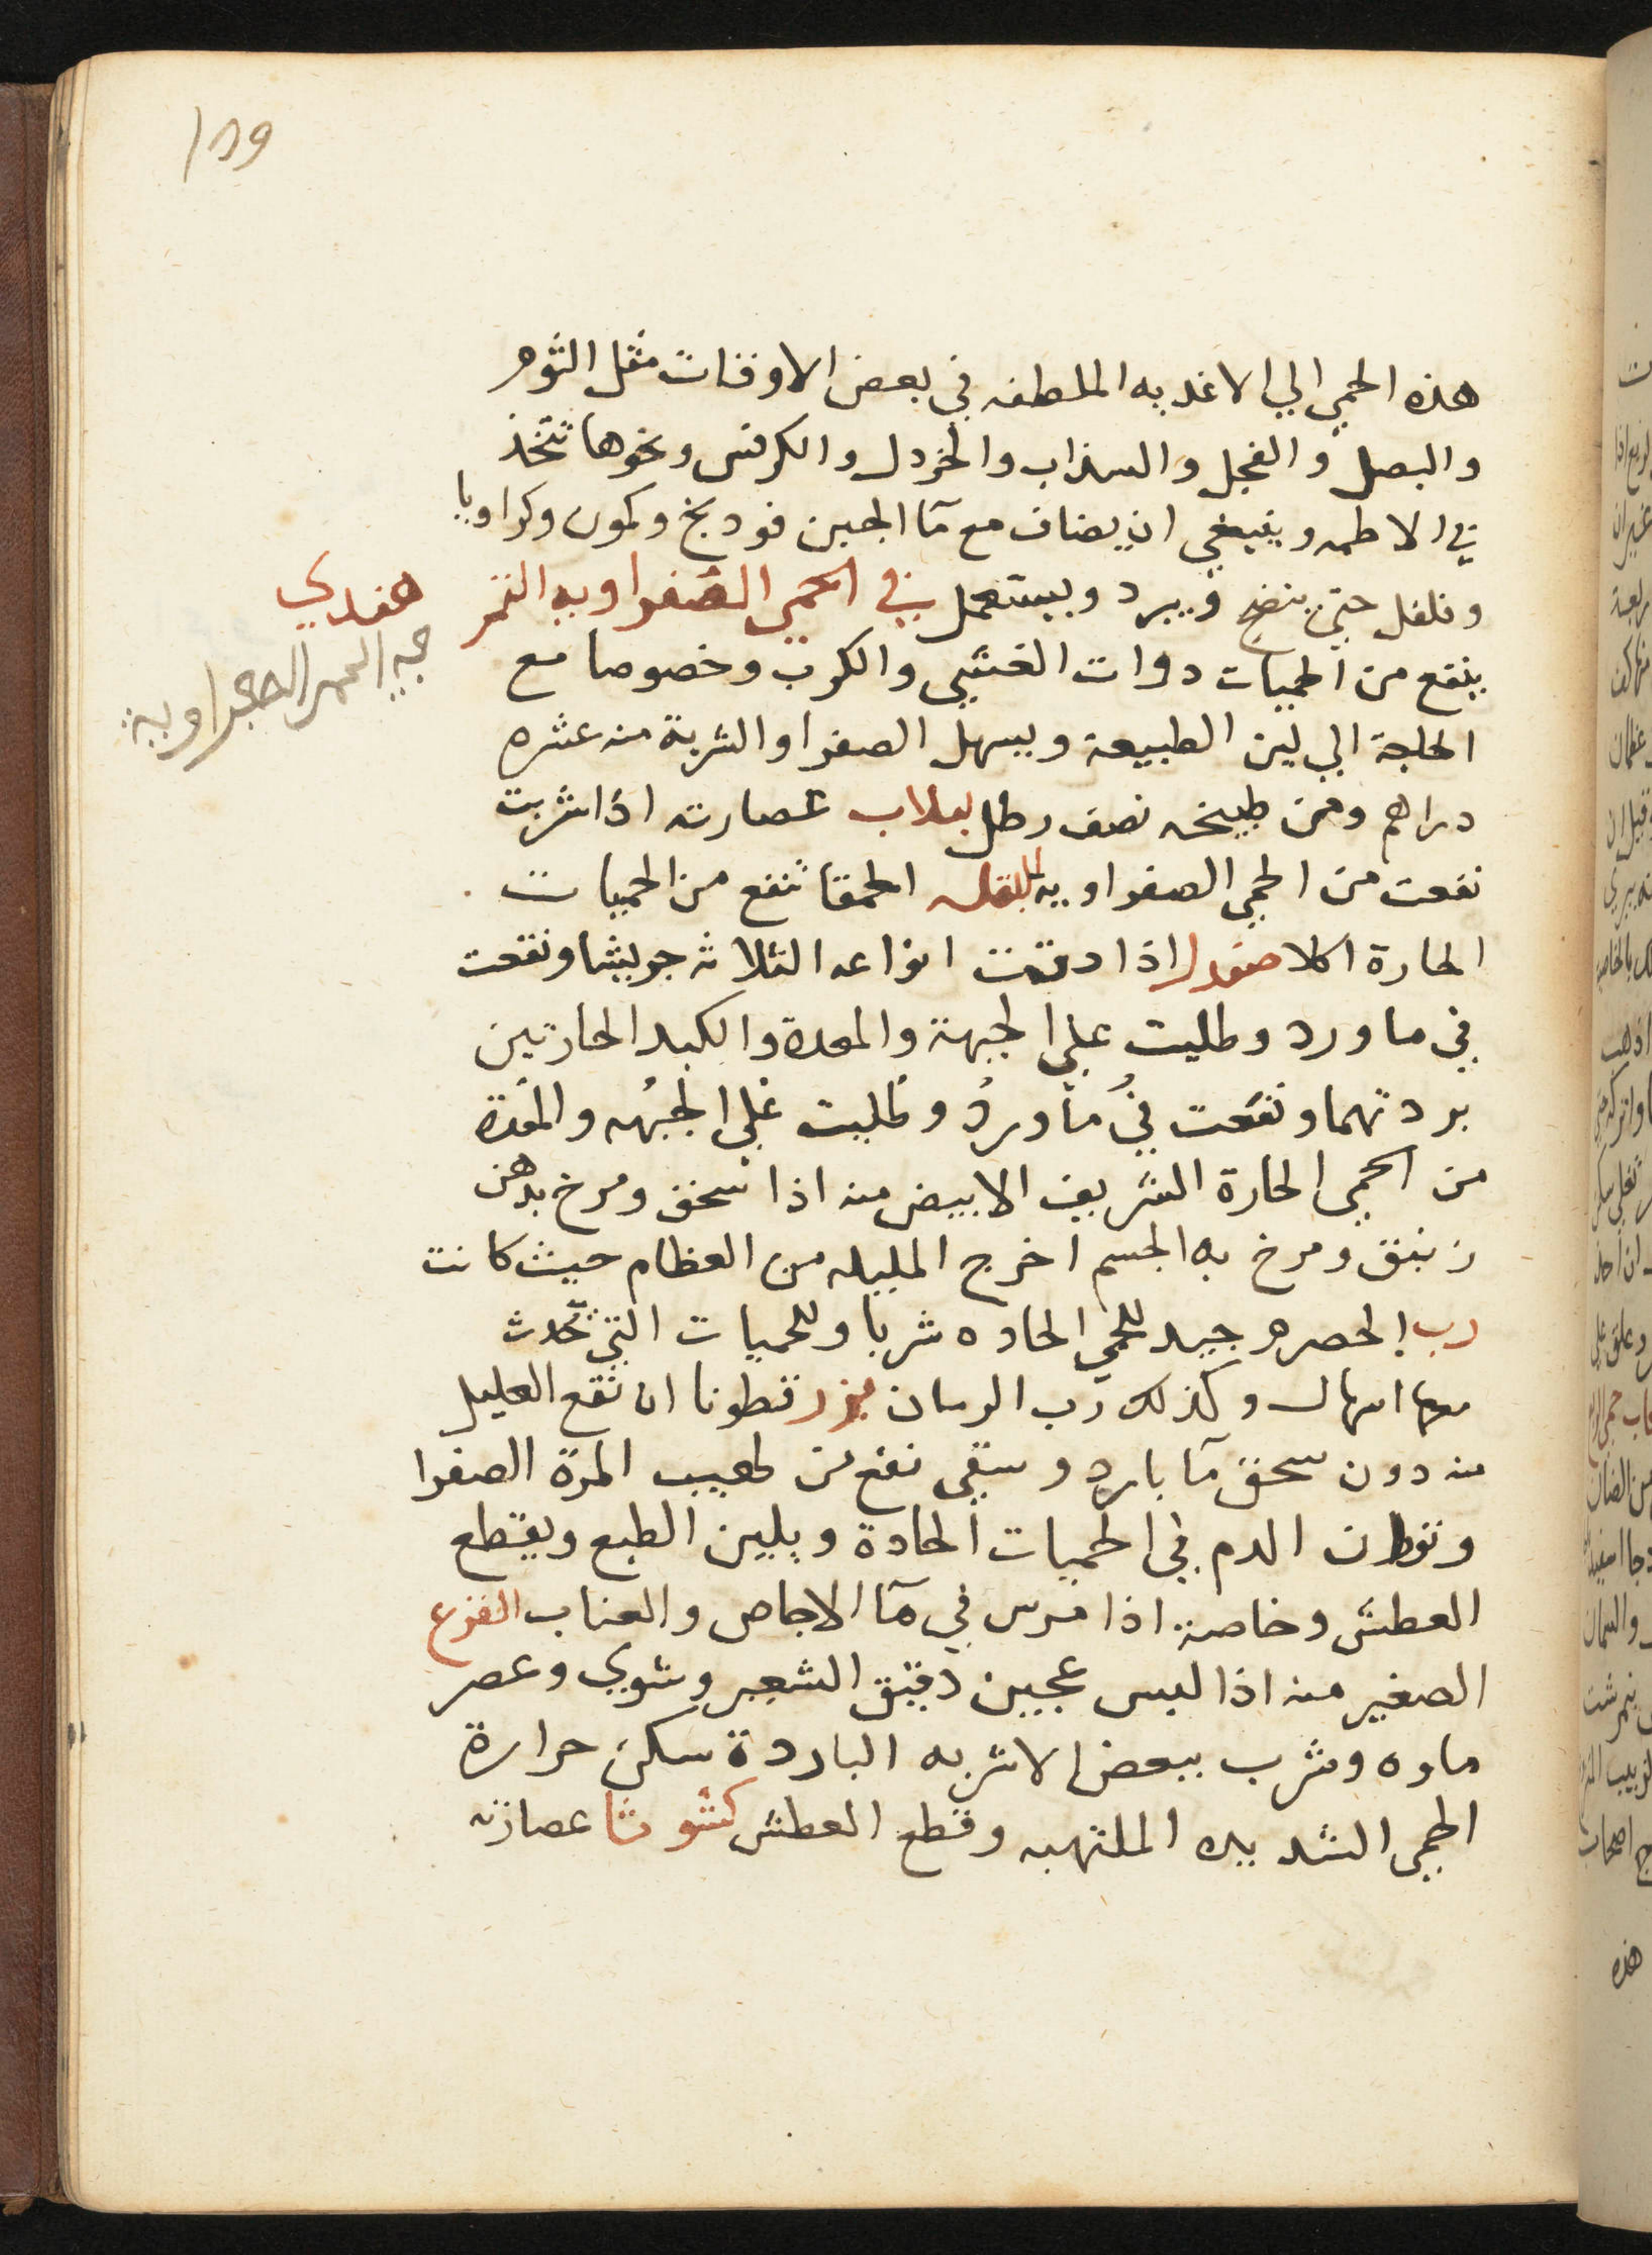 109
هذه الحمي الي الاغديه الملطفه في بعض الاوقات مثل الثوم
والبصل والفجل والسذاب والخردل والكرفس ونحوها تتخذ
في الاطمه وينبغي ان يضاف مع مآ الجبن فودنج وكمون وكراويا
وفلفل حتي ينضج ويبرد ويستعمل في الحمي الصفراويه التمر
هندي
في الحمي الصفراوية
ينفع من الحميات دوات الغشي والكرب وخصوصا مع
الحاجة الي لين الطبيعة ويسهل الصفرا والشربة منه عشره
دراهم ومن طبيخه نصف رطل لبلاب عصارته اذا شربت
نفعت من الحمي الصفراويه البقله الحمقا تنفع من الحميات
الحارة اكلا صندل اذا دقت انواعه الثلاثه جريشا ونقعت
في ما ورد وطليت علي الجبهة والمعدة والكبد الحارتين
بردتهما ونقعت في مآ ورد وطليت علي الجبهه والمعدة
من الحمي الحارة الشريف الابيض منه اذا سحق ومرخ بدهن
زنبق ومرخ به الجسم اخرج المليله من العظام حيث كانت
رب الحصرم جيد للحمي الحاده شربا وللحميات التي تحدث
معها اسهال وكذلك رب الرمان بزر قطونا ان نقع العليل
منه دون سحق مآ بارد وسقي نفع من لهيب المرة الصفرا
الدم في الحميات الحادة ويلين الطبع ويقطع
العطش وخاصة اذا مرس في مآ الاجاص والعناب القرع
الصغير منه اذا لبس عجين دقيق الشعير وشوي وعصر
ماوه وشرب ببعض الاشربه الباردة سكن حرارة
الحمي الشديده الملتهبه وقطع العطش كشوثا عصارته